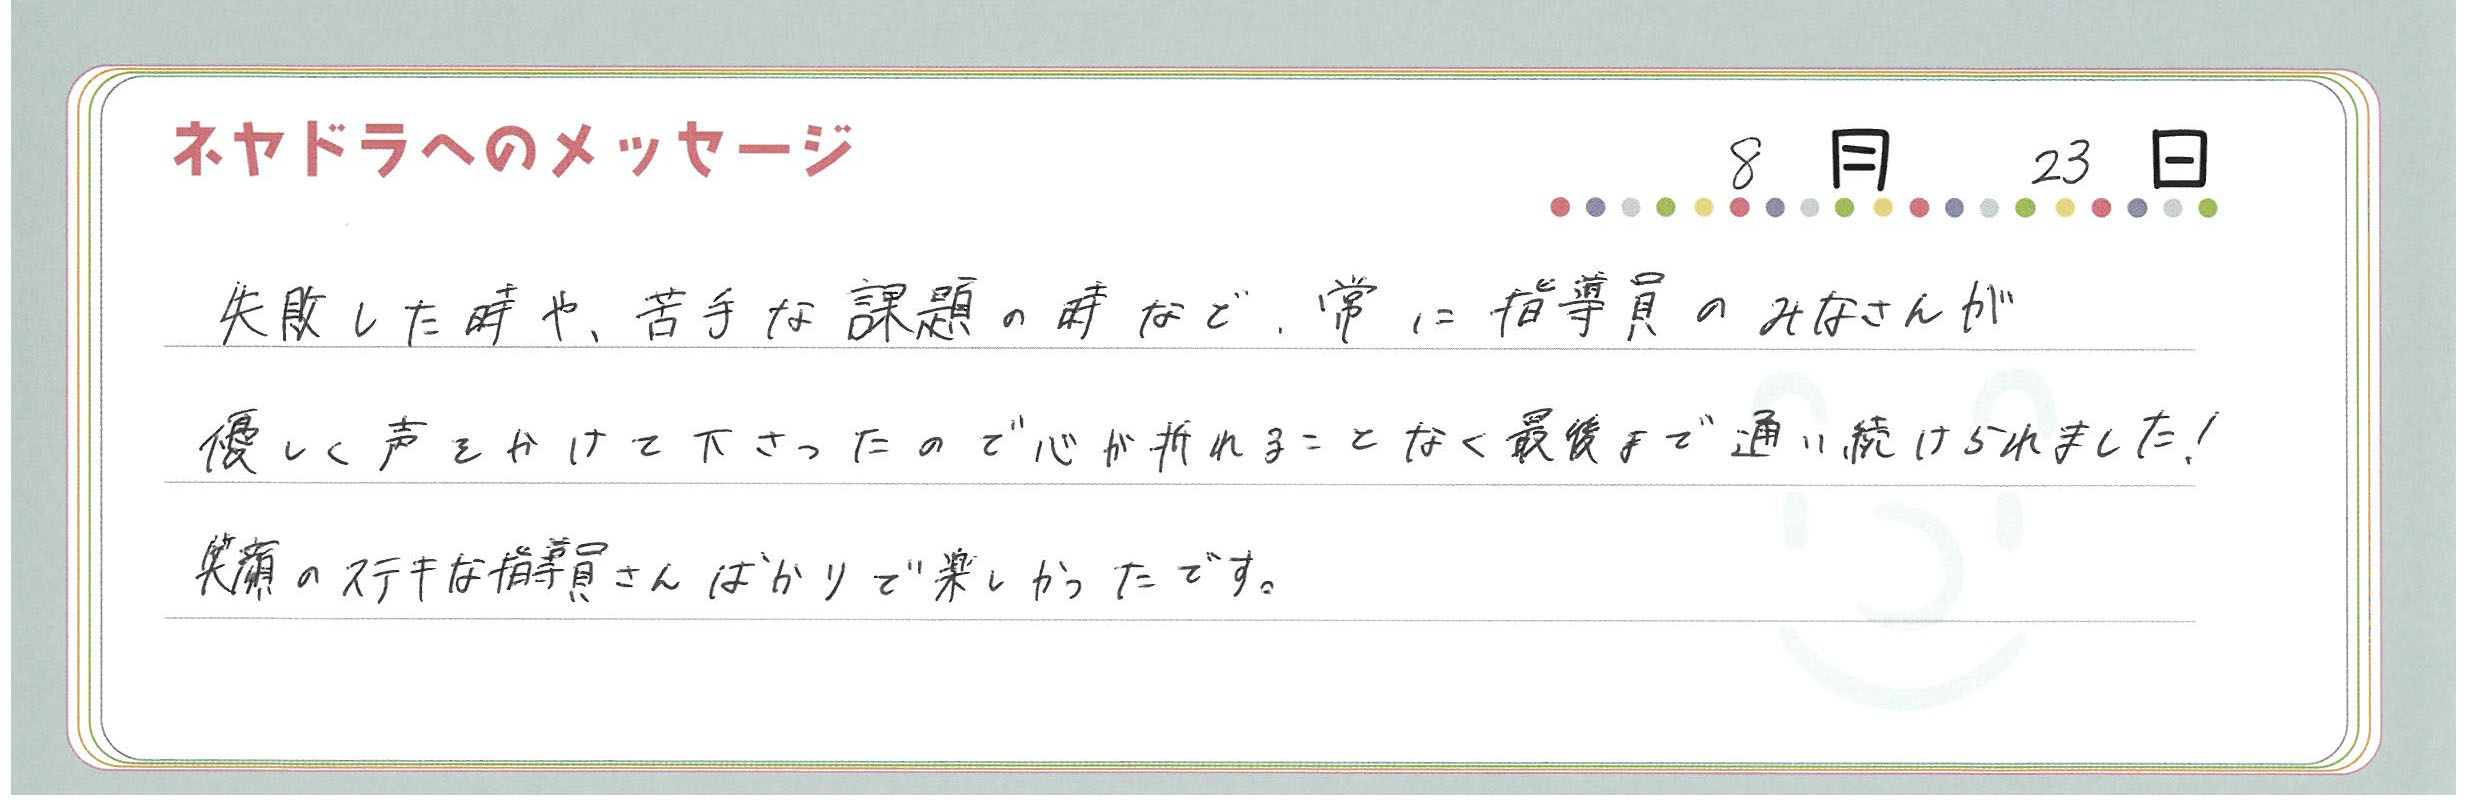 ネヤドラへのメッセージ
8月 23日
失敗した時や、苦手な課題の時など、常に指導員のみなさんが
優しく声をかけて下さったので心が折れることなく最後まで通い続けられました!
笑顔のステキな指導員さんばかりで楽しかったです。